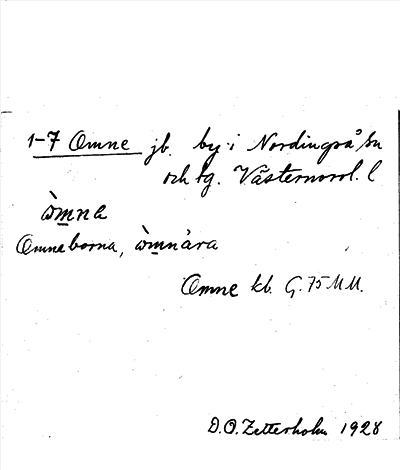 1-7 Omne jb. by i Nordingrå sn
och tg. Västernorrl. l
òmna
Omneborna, òmnåra
Omne kb. G. 75 MM.
D.O. Zetterholm 1928